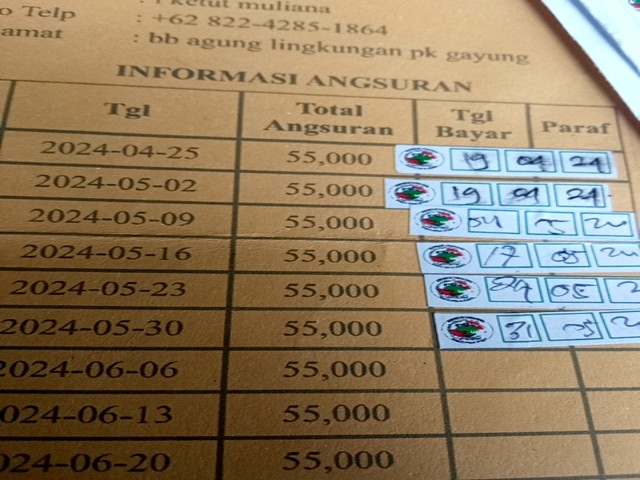 ketut muliana
o Telp : +62 822-4285-1864
amat : bb agung lingkungan pk gayung
INFORMASI ANGSURAN
Tgl Total Angsuran Tgl Bayar Paraf
2024-04-25 55,000 19 04 24
2024-05-02 55,000 19 04 24
2024-05-09 55,000
2024-05-16 55,000 17 05
2024-05-23 55,000 05
2024-05-30 55,000 31 05
2024-06-06 55,000
024-06-13 55,000
024-06-20 55,000